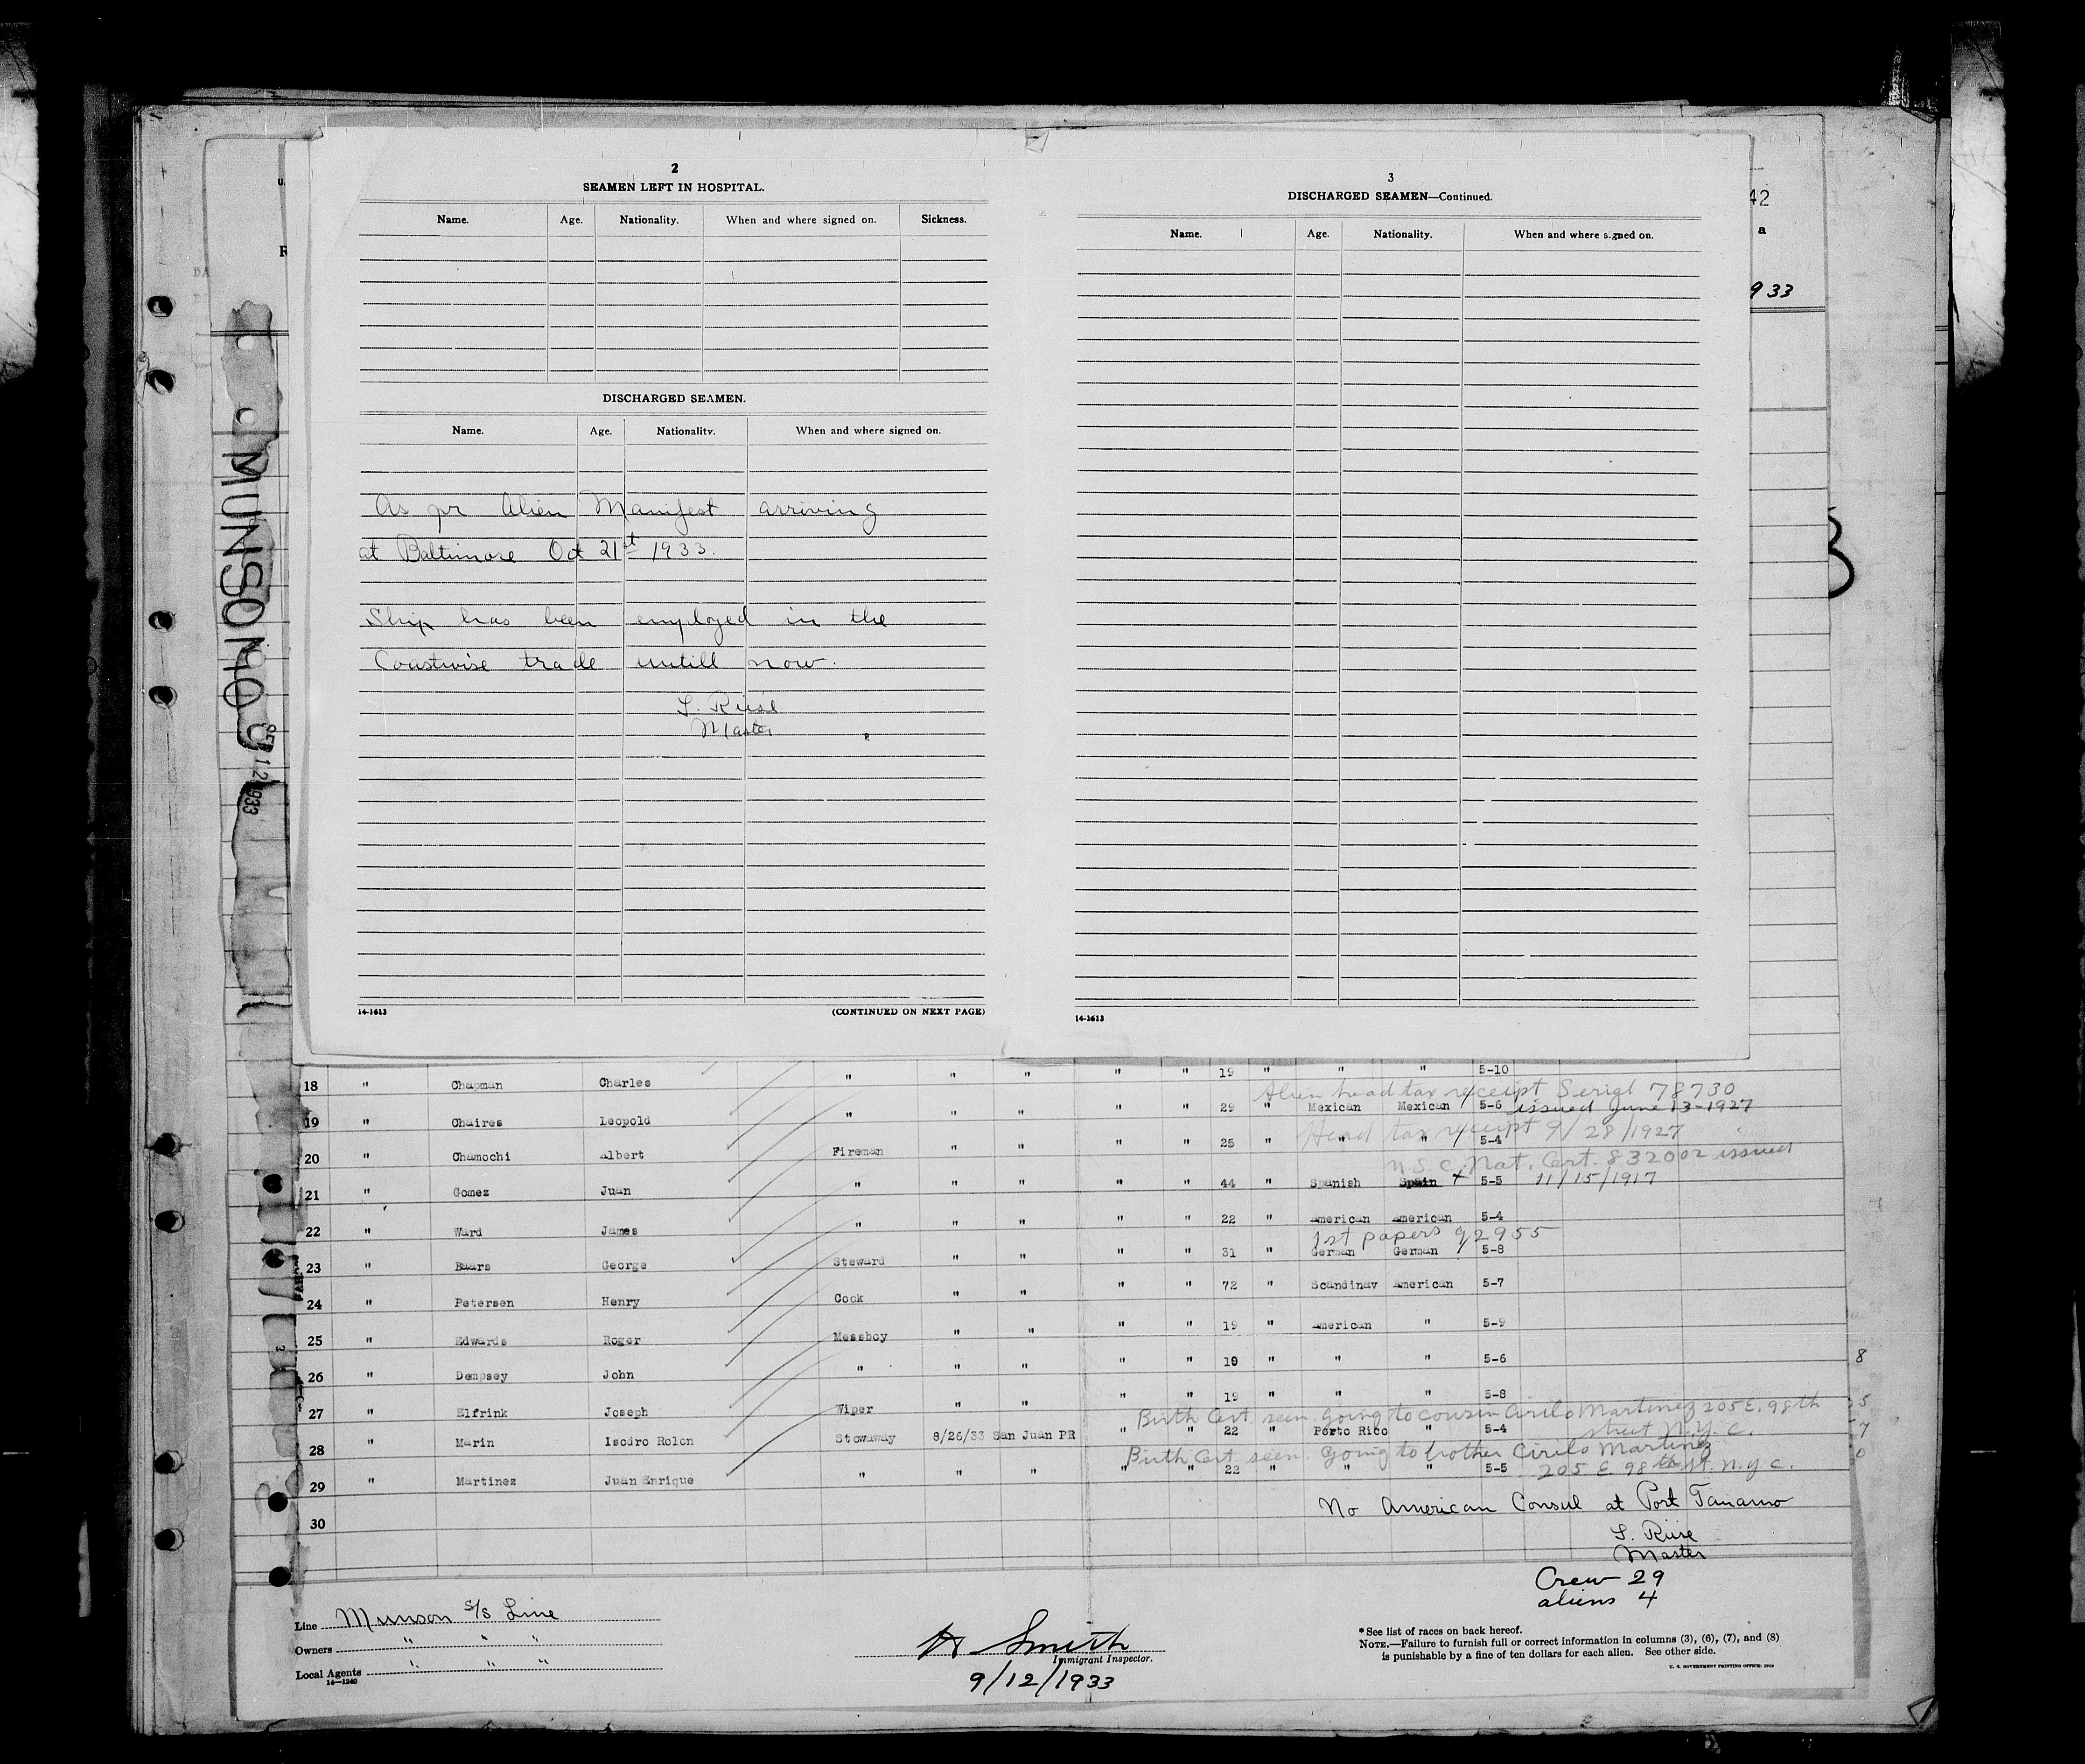 2
SEAMEN LEFT IN HOSPITAL.
Name. Age. Nationality. When and where signed on. Sickness.
DISCHARGED SEAMEN.
Name. Age. Nationality. When and where signed on.
As pr Alien Manifest arriving
at Baltimore Oct 21st 1933.
Ship has been employed in the
Coastwise trade untill now.
Master
14-1613 (CONTINUED ON NEXT PAGE)
3
DISCHARGED SEAMEN—Continued.
Name. Age. Nationality. When and where signed on.
14-1613
42
a
933
MUNSOMO
SEP 12 1933
18 " Chapman Charles " " " " " 19 " " " 5-10
Alien head tax receipt Serial 78730
19 " Chaires Leopold " " " " " 29 " Mexican Mexican 5-6 issued June 13-1927
Head tax receipt 9/28/1927
20 " Chamochi Albert Fireman " " " " 25 " " " 5-4
U.S.C. Nat. Cert. 832002 issued
21 " Gomez Juan " " " " " 44 " Spanish Spain 5-5 11/15/1917
22 " Ward James " " " " " 22 " American American 5-4
1st papers 92955
23 " Baars George Steward " " " " 31 " German German 5-8
24 " Petersen Henry Cook " " " " 72 " Scandinav American 5-7
25 " Edwards Roger Messboy " " " " 19 " American " 5-9
26 " Dempsey John " " " " " 19 " " " 5-6
27 " Elfrink Joseph Wiper " " " " 19 " " " 5-8
Birth Cert. seen. Going to cousin Cirilo Martinez 205 E. 98th
street N.Y.C.
28 " Marin Isodro Rolon Stowaway 8/26/33 San Juan PR " " 22 " Porto Rico " 5-4
Birth Cert. seen. Going to brother Cirilo Martinez
205 E. 98th St. N.Y.C.
29 " Martinez Juan Enrique " " " " " 22 " " " 5-5
30
No American Consul at Port Tanamo
Master
Crew 29
aliens 4
Line Munson S/S Line
Owners " " "
Local Agents " " "
14-1240
H Smith
Immigrant Inspector.
9/12/1933
*See list of races on back hereof.
NOTE.—Failure to furnish full or correct information in columns (3), (6), (7), and (8)
is punishable by a fine of ten dollars for each alien. See other side.